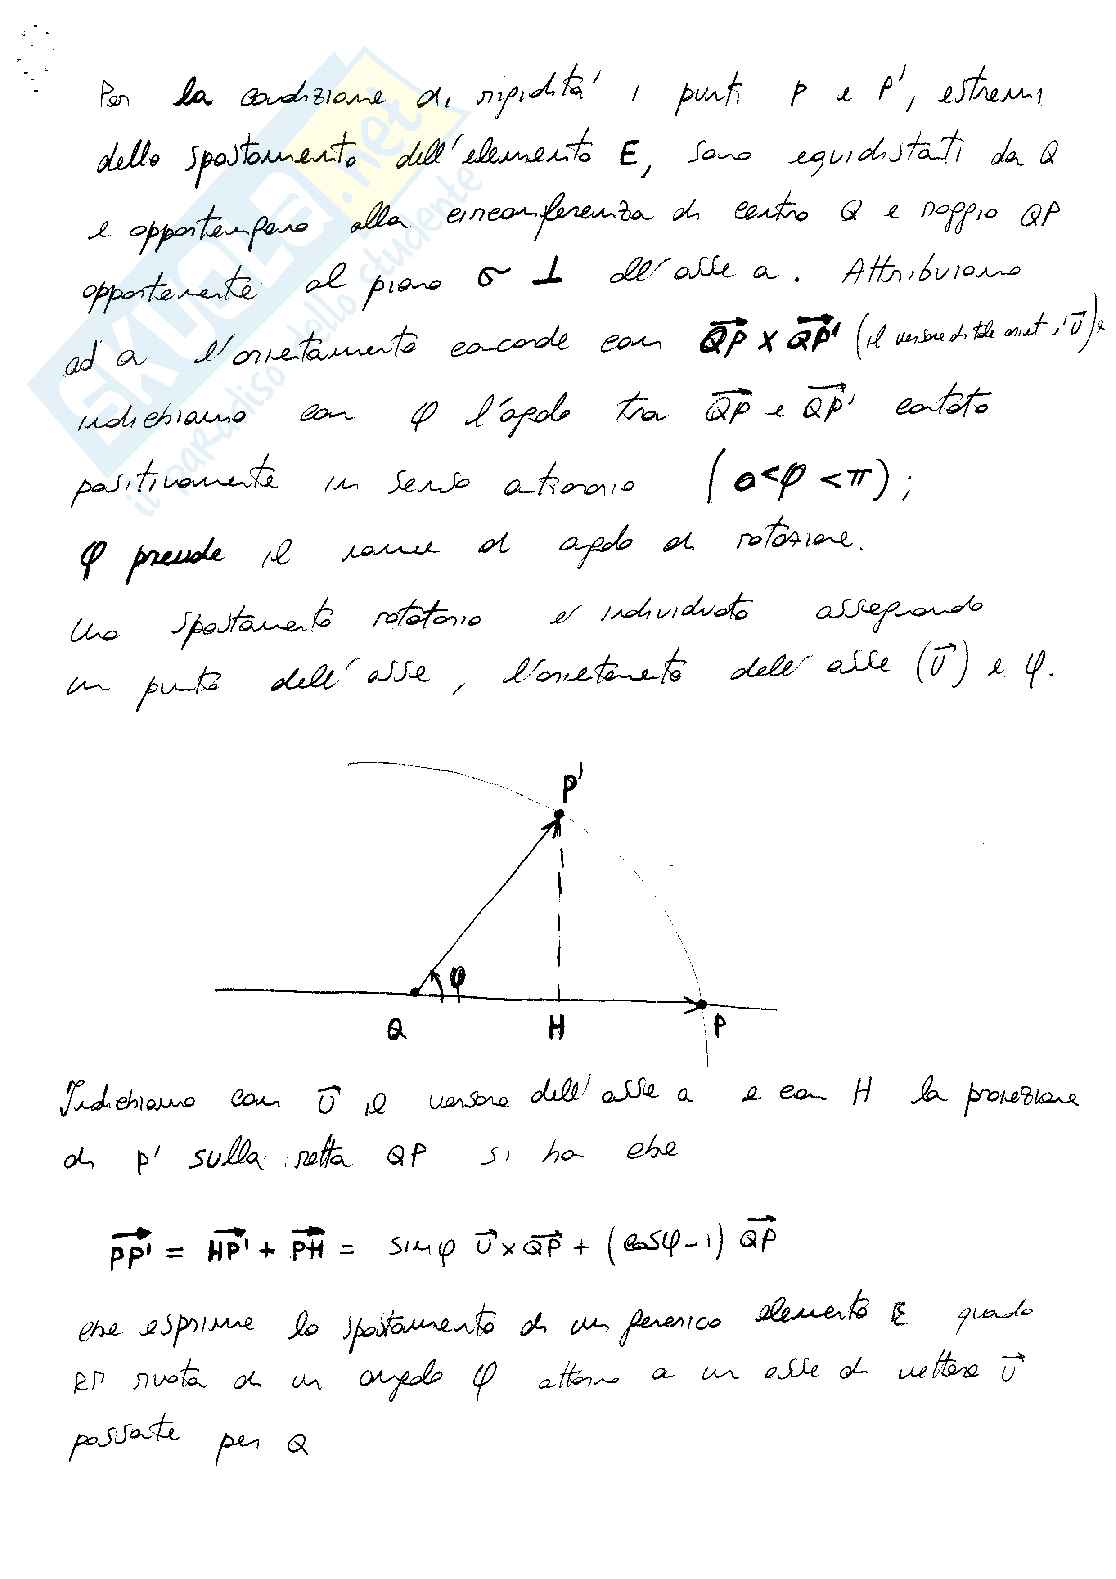 Per la condizione di rigidità i punti P e P', estremi
dello spostamento dell'elemento E, sono equidistanti da Q
e appartengono alla circonferenza di centro Q e raggio QP
appartenente al piano σ ⊥ all'asse a. Attribuiamo
ad a l'orientamento concorde con QP x QP' (il versore di tale orient. è U) e
indichiamo con φ l'angolo tra QP e QP' contato
positivamente in senso antiorario (0<φ<π);
φ prende il nome di angolo di rotazione.
Uno spostamento rotatorio è individuato assegnando
un punto dell'asse, l'orientamento dell'asse (U) e φ.
P'
φ
Q H P
Indichiamo con U il versore dell'asse a e con H la proiezione
di P' sulla retta QP si ha che
PP' = HP' + PH = sinφ U x QP + (cosφ-1) QP
che esprime lo spostamento di un generico elemento E quando
ruota di un angolo φ attorno a un asse di vettore U
passante per Q
SKUOLA.net
il paradiso dello studente